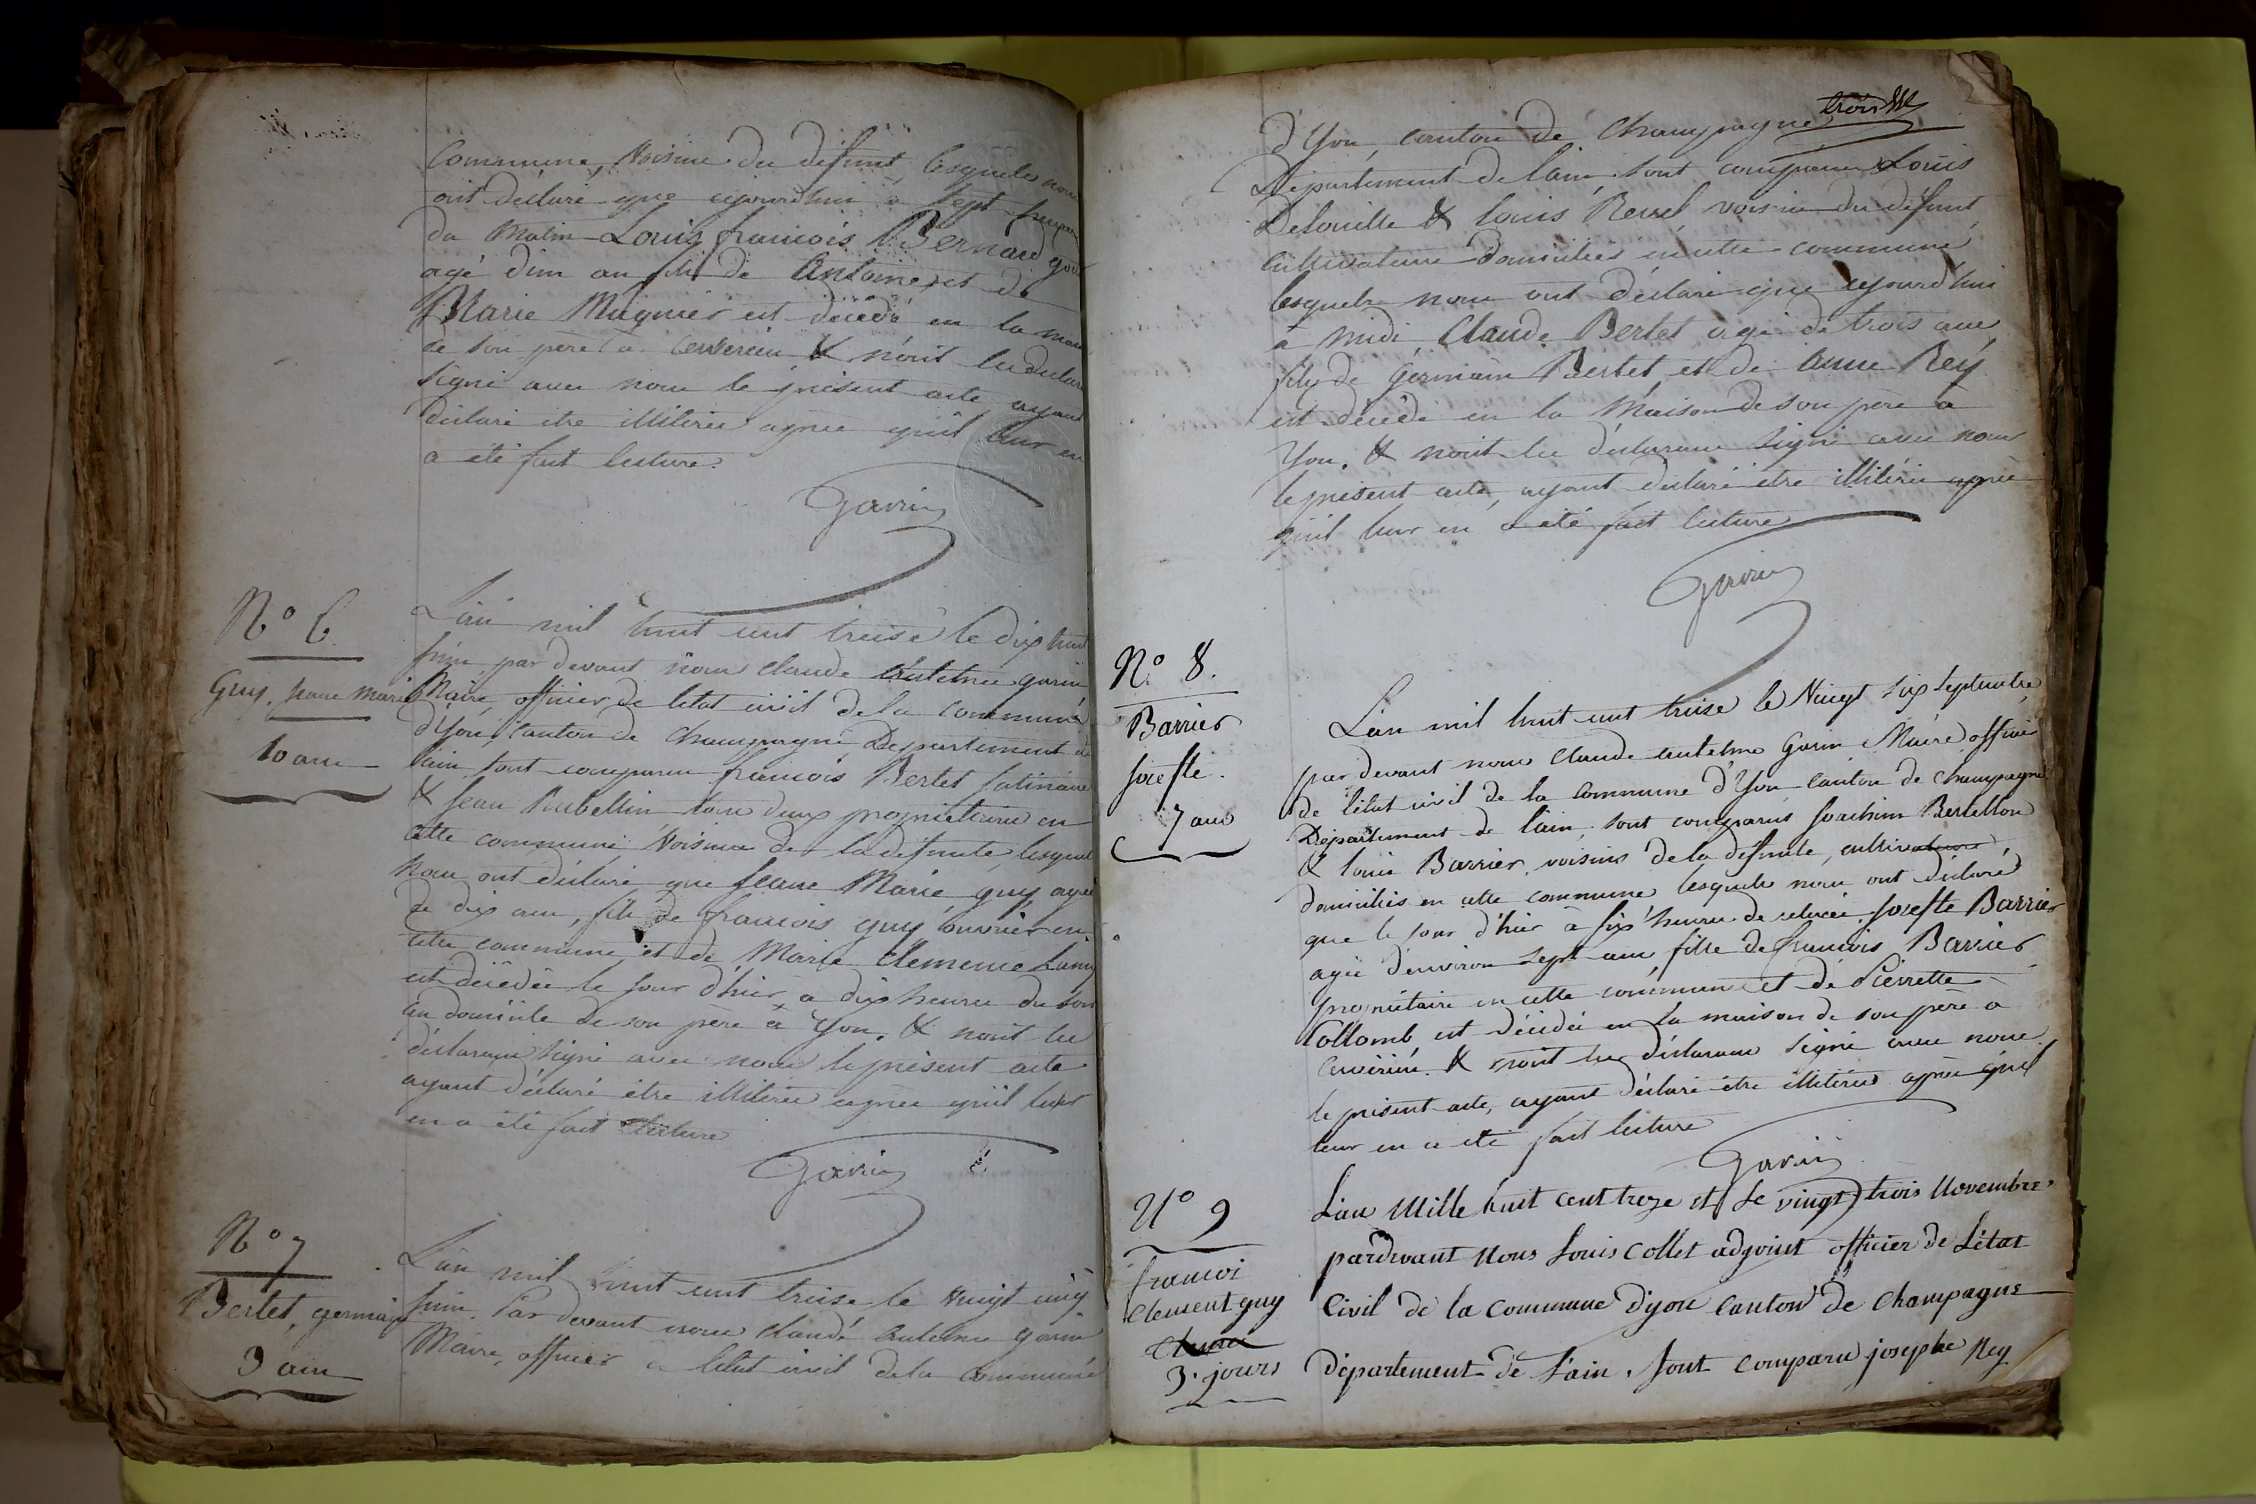 Commune, voisins du défunt, lesquels nous
ont déclaré que cejourd'hui à sept heures
du matin Louis françois Bernard guy
agé d'un an fils de Antoine, et de
Marie Mugnier est décédé en la mai
de son père à Cerverieu & n'ont les déclar
signé avec nous le présent acte ayant
déclaré être illitérés après qu'il leur en
a été fait lecture.
Gavin
N° 6
Guy, jeane marie
10 ans
L'an mil huit cent treise le dix huit
juin par devant nous claude antelme gavin
Maire, officier de l'état civil de la commune
d'Yon, canton de Champagne Département de
l'ain, sont comparu françois Bertet
& jean Rubellin tous deux propriétaires en
cette commune voisins de la défunte, lesquels
nous ont déclaré que jeane Marie guy, agée
de dix ans, fille de françois guy ouvrier en
cette commune et de Marie Clemence
est décédée le jour d'hier à dix heures du soir
au domicile de son père à Yon. & n'ont les
déclarans signé avec nous le présent acte
ayant déclaré être illitérés après qu'il leur
en a été fait lecture
Gavin
N° 7
Bertet, germain
3 ans
L'an mil huit cent treise le vingt cinq
juin. Par devant nous claude antelme gavin
Maire, officier de l'état civil de la commune
trois
d'Yon, canton de Champagne
Département de l'ain, sont comparus Louis
Delouille & louis Ressel, voisins du défunt,
cultivateurs domiciliés en cette commune,
lesquels nous ont déclaré que cejourd'hui
à midi Claude Bertet agé de trois ans,
fils de germain Bertet et de anne Rey
est décédé en la Maison de son père à
Yon. & n'ont les déclarans signé avec nous
le présent acte, ayant déclaré être illitérés après
qu'il leur en a été fait lecture
Gavin
N° 8.
Barrier
josefte.
7 ans
L'an mil huit cent treise le vingt six septembre
par devant nous Claude antelme Gavin Maire officier
de l'état civil de la commune d'Yon canton de Champagne
Département de l'ain, sont comparus joachim Bertellon
& louis Barrier, voisins de la défunte, cultivateurs,
domiciliés en cette commune lesquels nous ont déclaré
que le jour d'hier à six heures de relevée josefte Barrier
agée d'environ sept ans fille de françois Barrier
propriétaire en cette commune et de Pierrette
Collomb, est décédée en la maison de son père à
Cerverieu. & n'ont les déclarans signé avec nous
le présent acte, ayant déclaré être illitérés après qu'il
leur en a été fait lecture
Gavin
N° 9
francoi
clement guy
3. jours
L'an Mille huit cent treze et le vingt trois Novembre
pardevant Nous Louis Collet adjoint officier de L'état
Civil de la Commune d'yon Canton de Champagne
département de L'ain, sont comparu josephe Rey